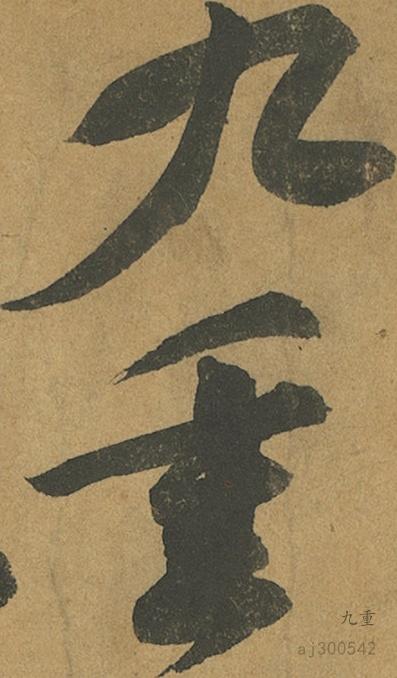 九重
九重
aj300542